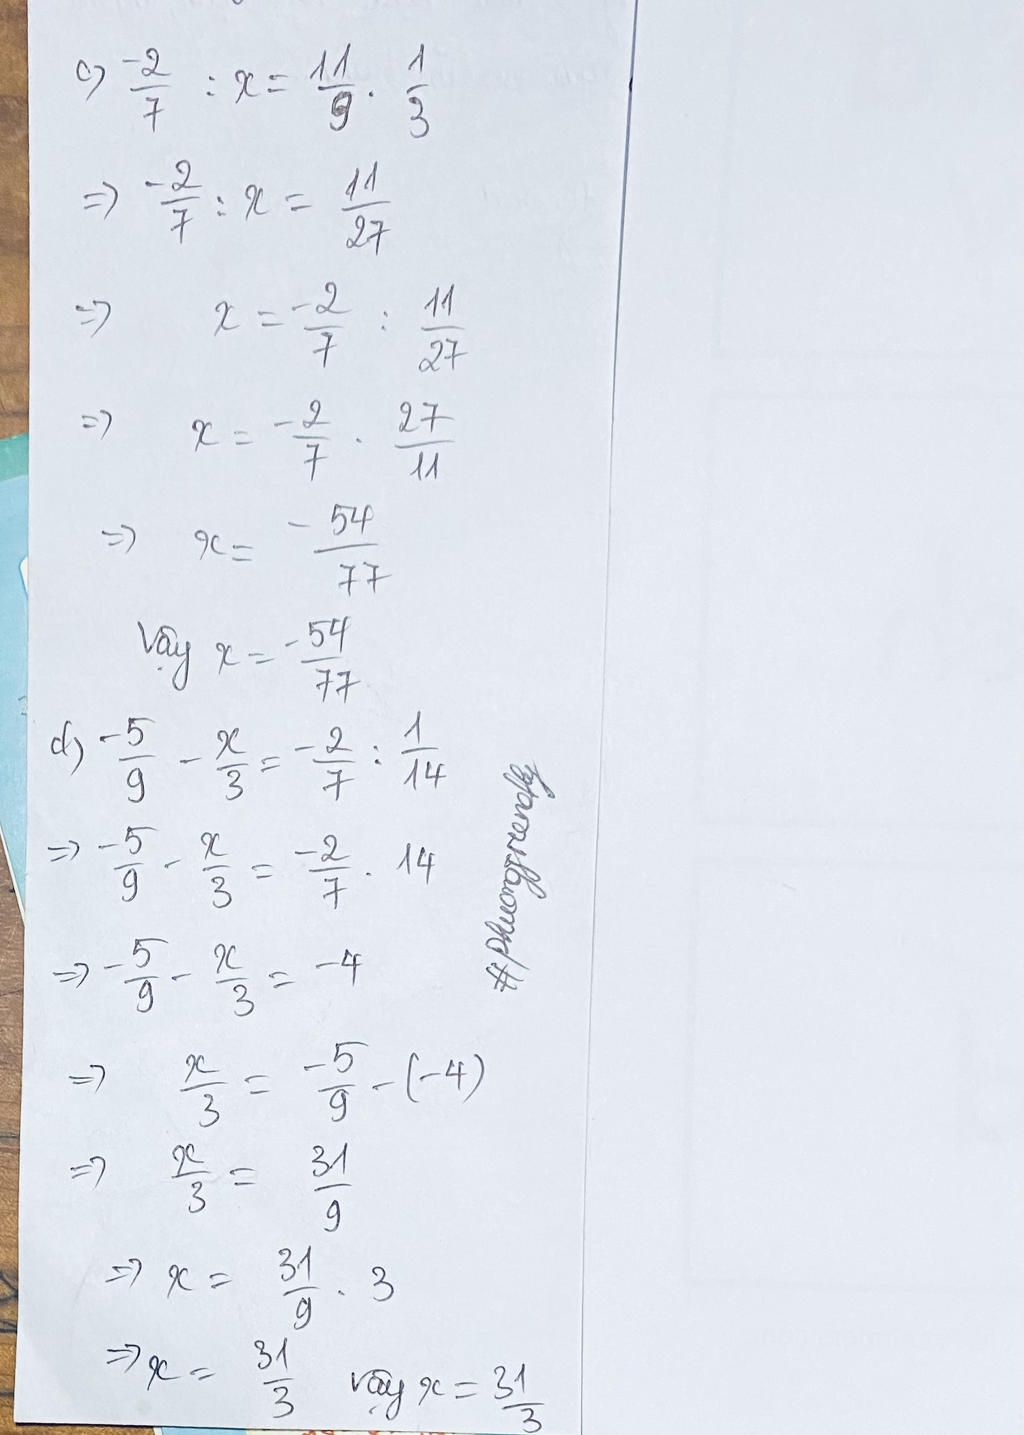 c) -2/7 : x = 11/9 . 1/3
=> -2/7 : x = 11/27
=> x = -2/7 : 11/27
=> x = -2/7 . 27/11
=> x = -54/77
Vậy x = -54/77
d) -5/9 - x/3 = -2/7 : 1/14
=> -5/9 - x/3 = -2/7 . 14
=> -5/9 - x/3 = -4
=> x/3 = -5/9 - (-4)
=> x/3 = 31/9
=> x = 31/9 . 3
=> x = 31/3 Vậy x = 31/3